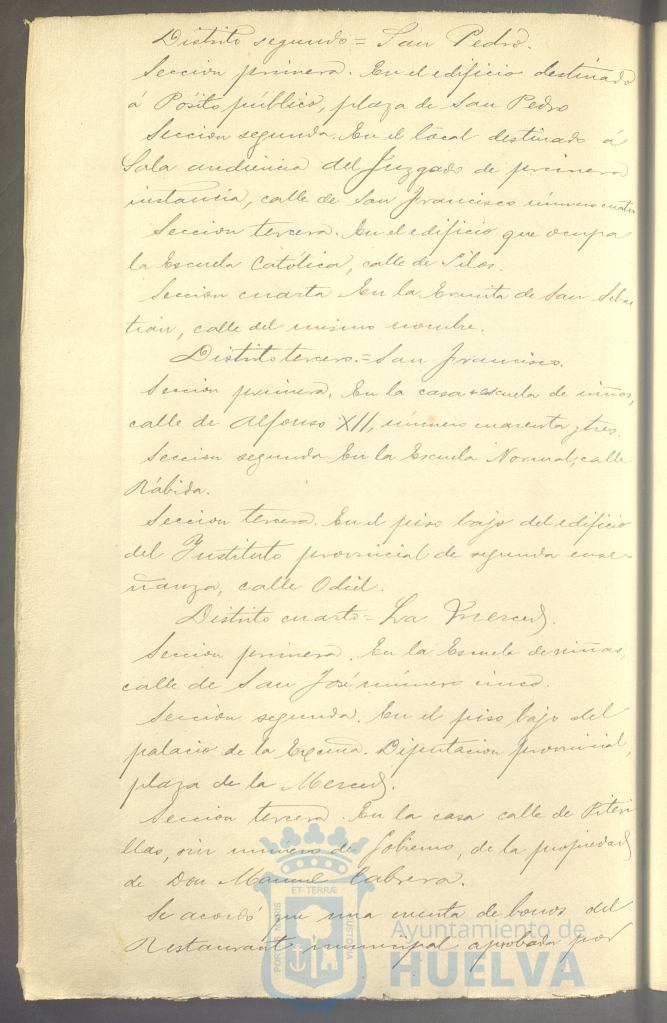 Distrito segundo = San Pedro.
Seccion primera. En el edificio destinado
á Pósito público, plaza de San Pedro
Seccion segunda. En el local destinado á
Sala audiencia del Juzgado de primera
instancia, calle de San Francisco número cuatro
Seccion tercera. En el edificio que ocupa
la Escuela Católica, calle de Silos.
Seccion cuarta En la Ermita de San Sebas
tián, calle del mismo nombre.
Distrito tercero. = San Francisco.
Seccion primera. En la casa escuela de niños,
calle de Alfonso XII, número cuarenta y tres.
Seccion segunda En la Escuela Normal, calle
Rábida.
Seccion tercera. En el piso bajo del edificio
del Instituto provincial de segunda ense-
ñanza, calle Odiel.
Distrito cuarto = La Merced.
Seccion primera. En la Escuela de niñas,
calle de San José número cinco.
Seccion segunda. En el piso bajo del
palacio de la Excma. Diputacion provincial,
plaza de la Merced.
Seccion tercera. En la casa calle de
llas, sin número de Gobierno, de la propiedad
de Don Manuel Cabrera.
Se acordó que una cuenta de bonos del
Restaurant municipal aprobada por
ET TERRÆ
PORTUS MARIS
CUSTODIA
Ayuntamiento de
HUELVA